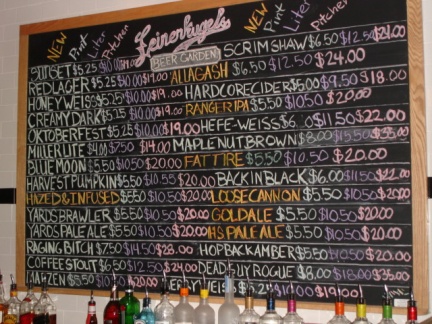 NEW Pint Liter Pitcher
Leinenkugel's
BEER GARDEN
NEW Pint Liter Pitcher
SUNSET $5.25 $10.00
RED LAGER $5.25 $10.00 $19.00
HONEYWEISS $5.25 $10.00 $19.00
CREAMY DARK $5.25 $10.00 $19.00
OKTOBERFEST $5.25 $10.00 $19.00
MILLER LITE $4.00 $7.50 $14.00
BLUE MOON $5.50 $10.50 $20.00
HARVEST PUMPKIN $5.50 $10.55 $20.00
HAZED & INFUSED $5.50 $10.50 $20.00
YARDS BRAWLER $5.50 $10.50 $20.00
YARDS PALE ALE $5.50 $10.50 $20.00
RAGING BITCH $7.50 $14.50 $28.00
COFFEE STOUT $6.50 $12.50 $24.00
SCRIMSHAW $6.50 $12.50 $24.00
ALLAGASH $6.50 $12.50 $24.00
HARD CORE CIDER $5.00 $9.50 $18.00
RANGER IPA $5.50 $10.50 $20.00
HEFE-WEISS $6.00 $11.50 $22.00
MAPLE NUT BROWN $8.00
FAT TIRE $5.50 $10.50 $20.00
BACK IN BLACK $6.00 $11.50
LOOSE CANNON $5.50 $10.50 $20.00
GOLD ALE $5.50 $10.50 $20.00
PALE ALE $5.50 $10.50 $20.00
HOPBACK AMBER $5.50 $10.50 $20.00
DEAD GUY ROGUE $8.00 $18.00 $35.00
BERRY WEISS $5.25 $10.00 $19.00